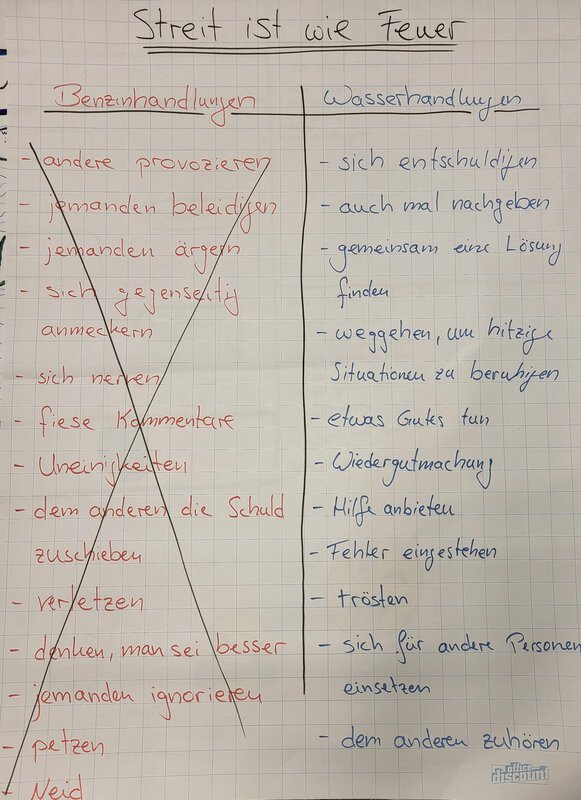 Streit ist wie Feuer
Benzinhandlungen
- andere provozieren
- jemanden beleidigen
- jemanden ärgern
- sich gegenseitig
anmeckern
- sich nerven
- fiese Kommentare
- Uneinigkeiten
- dem anderen die Schuld
zuschieben
- verletzen
- denken, man sei besser
- jemanden ignorieren
- petzen
- Neid
Wasserhandlungen
- sich entschuldigen
- auch mal nachgeben
- gemeinsam eine Lösung
finden
- weggehen, um hitzige
Situationen zu beruhigen
- etwas Gutes tun
- Wiedergutmachung
- Hilfe anbieten
- Fehler eingestehen
- trösten
- sich für andere Personen
einsetzen
- dem anderen zuhören
office
discount